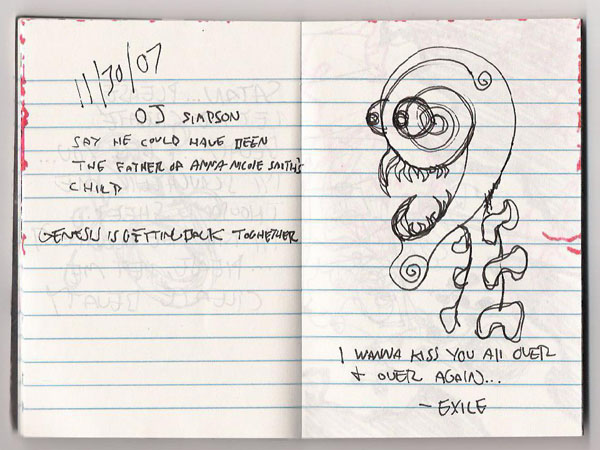 11/30/07
OJ SIMPSON
SAY HE COULD HAVE BEEN
THE FATHER OF ANNA-NICOLE SMITH'S
CHILD
GENESIS IS GETTING BACK TOGHETHER
I WANNA KISS YOU All OVER
+ OVER AGAIN...
- EXILE